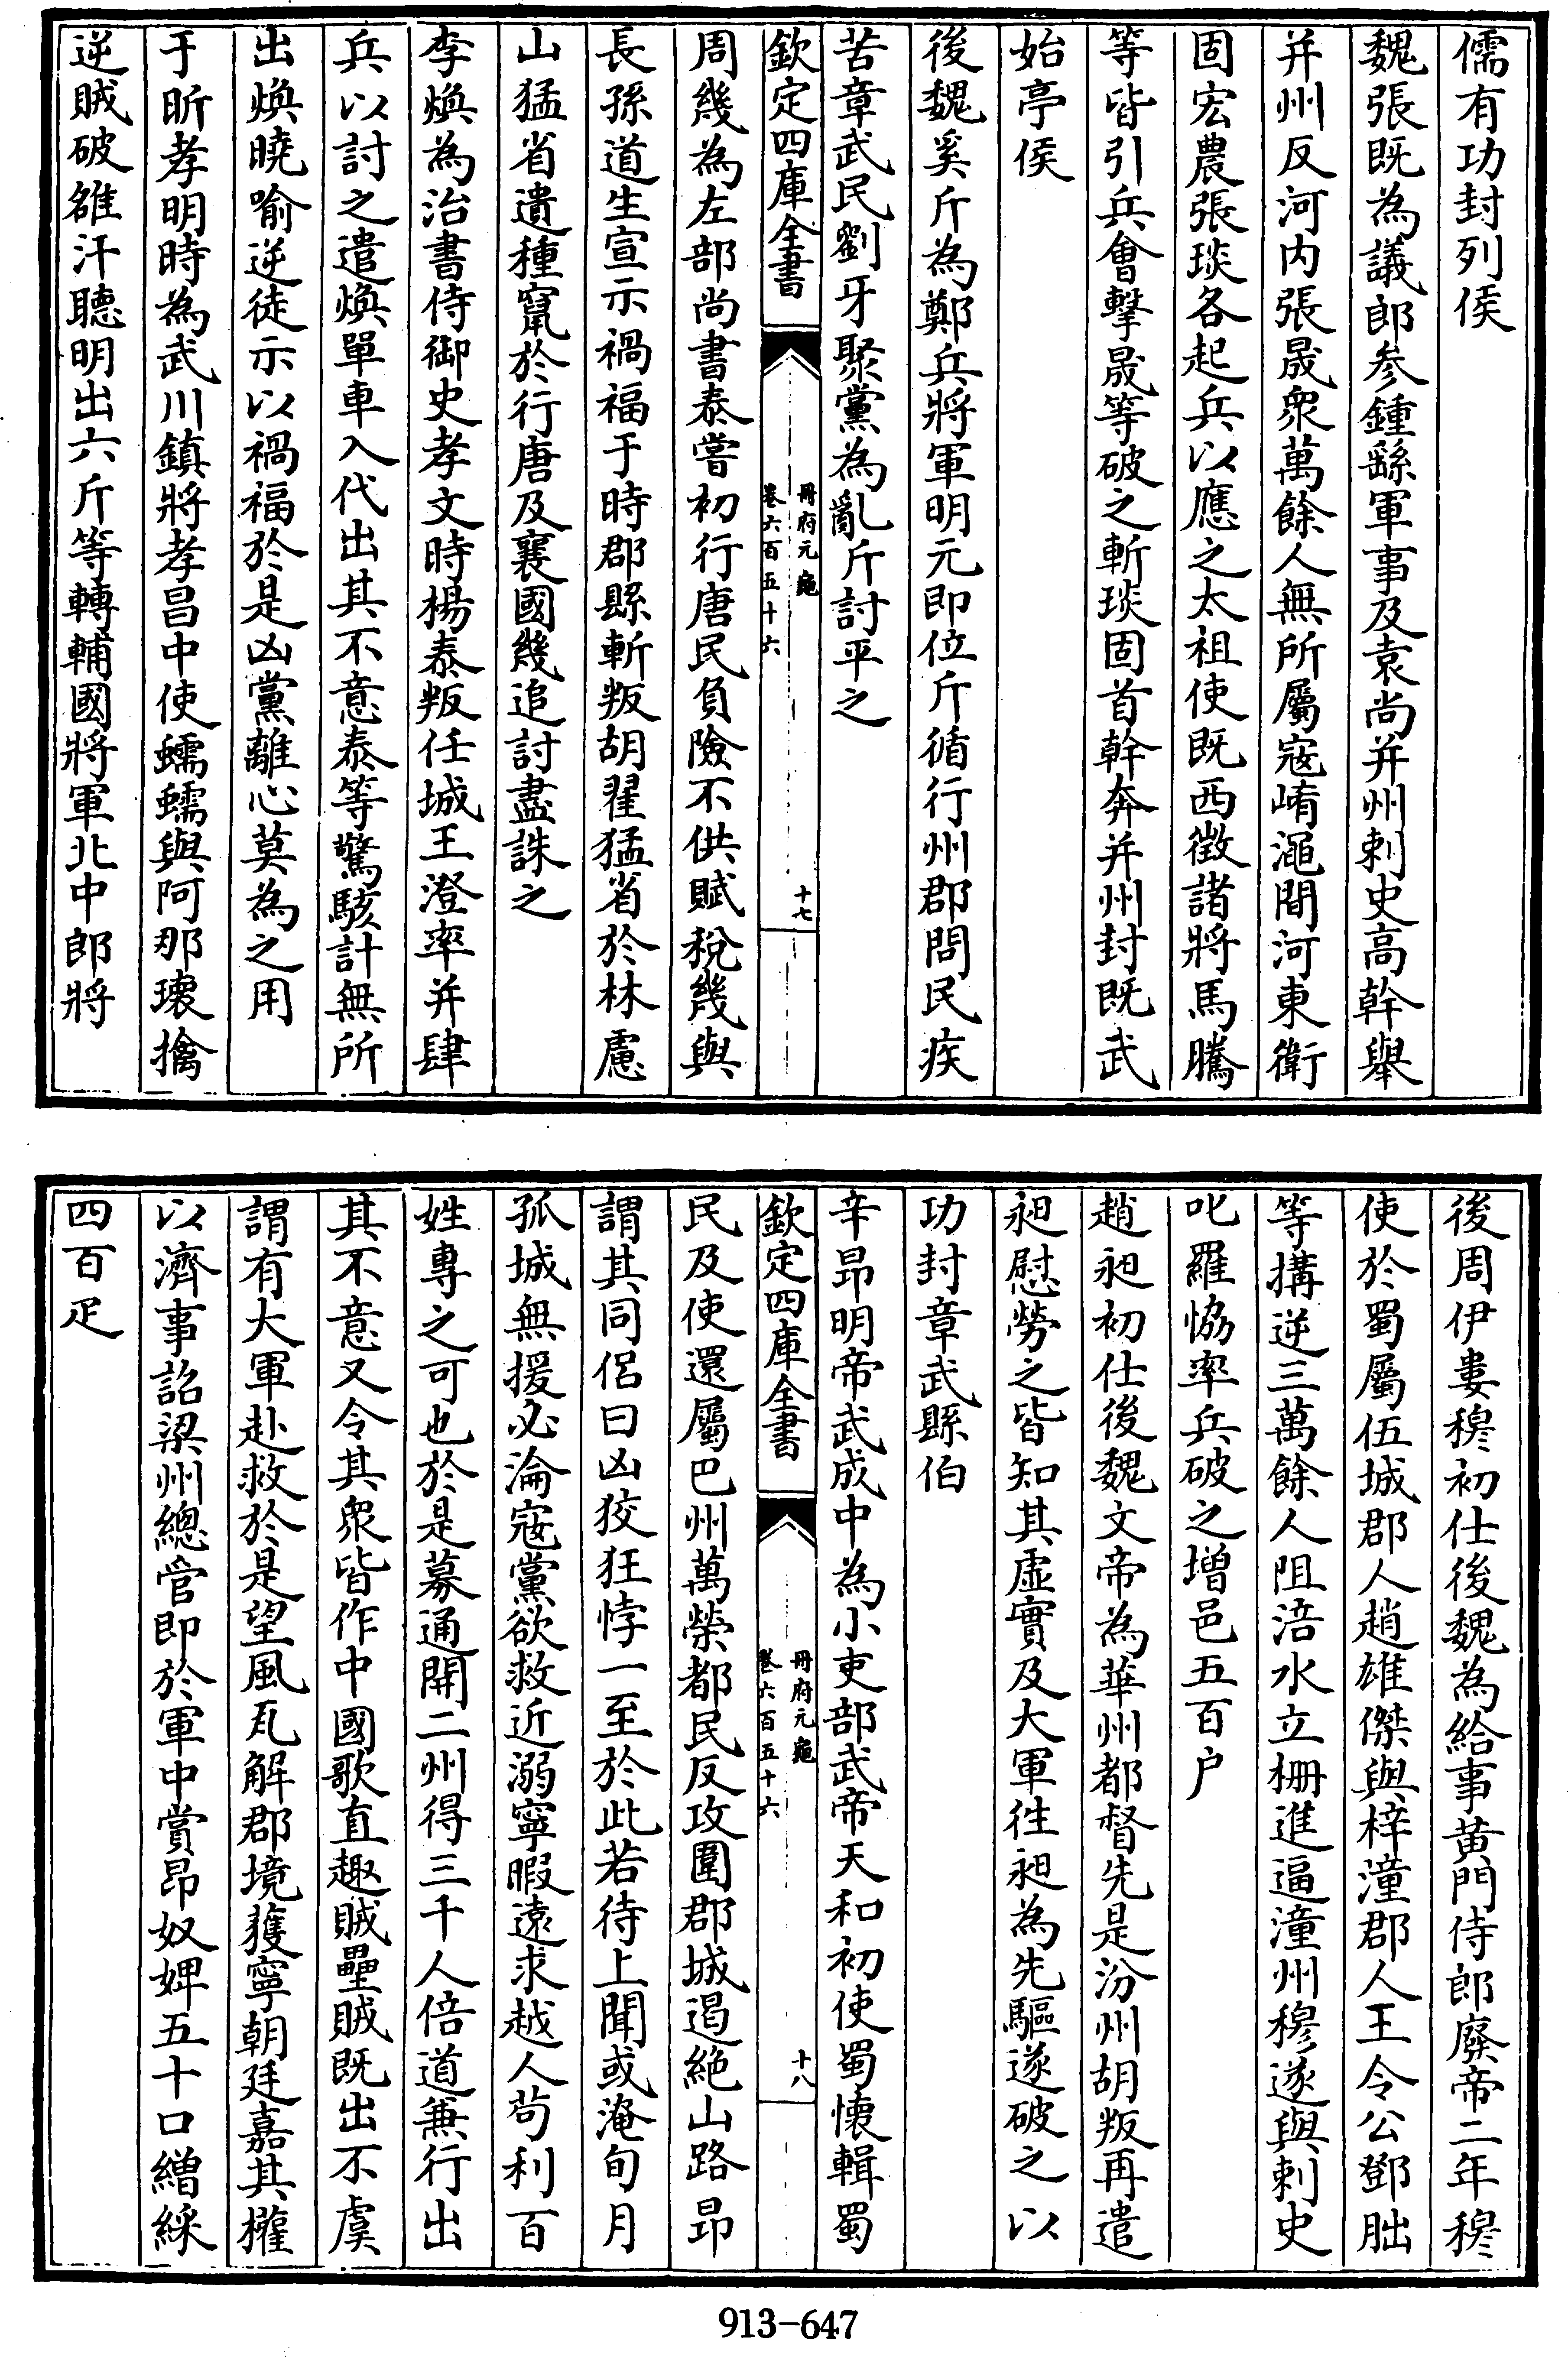 儒有功封列侯
魏張既為議郎參鍾繇軍事及袁尚并州刺史高幹舉
并州反河内張晟衆萬餘人無所屬寇崤澠間河東衛
固宏農張琰各起兵以應之太祖使既西徵諸將馬騰
等皆引兵會擊晟等破之斬琰固首幹奔并州封既武
始亭侯
後魏奚斤為鄭兵將軍明元即位斤循行州郡問民疾
苦章武民劉牙聚黨為亂斤討平之
欽定四庫全書
冊府元龜
卷六百五十六
十七
周幾為左部尚書泰嘗初行唐民負險不供賦稅幾與
長孫道生宣示禍福于時郡縣斬叛胡翟猛省於林慮
山猛省遺種竄於行唐及襄國幾追討盡誅之
李煥為治書侍御史孝文時楊泰叛任城王澄率并肆
兵以討之遣煥單車入代出其不意泰等驚駭計無所
出煥曉喻逆徒示以禍福於是凶黨離心莫為之用
于昕孝明時為武川鎮將孝昌中使蠕蠕與阿那瓌擒
逆賊破雒汗聽明出六斤等轉輔國將軍北中郎將
後周伊婁穆初仕後魏為給事黃門侍郎廢帝二年穆
使於蜀屬伍城郡人趙雄傑與梓潼郡人王令公鄧朏
等搆逆三萬餘人阻涪水立柵進逼潼州穆遂與刺史
叱羅恊率兵破之增邑五百户
趙昶初仕後魏文帝為華州都督先是汾州胡叛再遣
昶慰勞之皆知其虛實及大軍徃昶為先驅遂破之以
功封章武縣伯
辛昂明帝武成中為小吏部武帝天和初使蜀懷輯蜀
欽定四庫全書
冊府元龜
卷六百五十六
十八
民及使還屬巴州萬榮都民反攻圍郡城遏絶山路昂
謂其同侣曰凶狡狂悖一至於此若待上聞或淹旬月
孤城無援必淪寇黨欲救近溺寧暇遠求越人苟利百
姓專之可也於是募通開二州得三千人倍道兼行出
其不意又令其衆皆作中國歌直趣賊壘賊既出不虞
謂有大軍赴救於是望風瓦解郡境獲寧朝廷嘉其權
以濟事詔梁州總管即於軍中賞昂奴婢五十口繒綵
四百疋
913-647